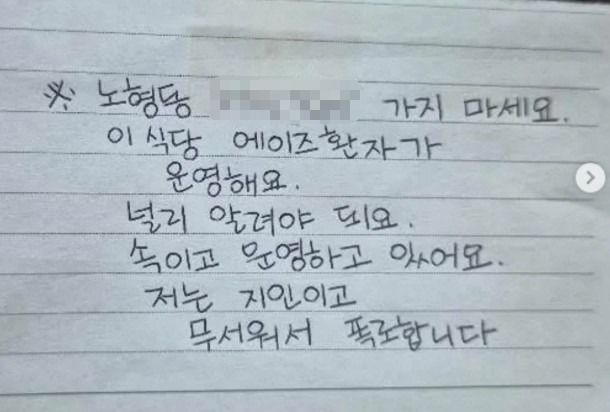 ※ 노형동 가지 마세요.
이 식당 에이즈환자가
운영해요.
널리 알려야 되요.
속이고 운영하고 있어요.
저는 지인이고
무서워서 폭로합니다